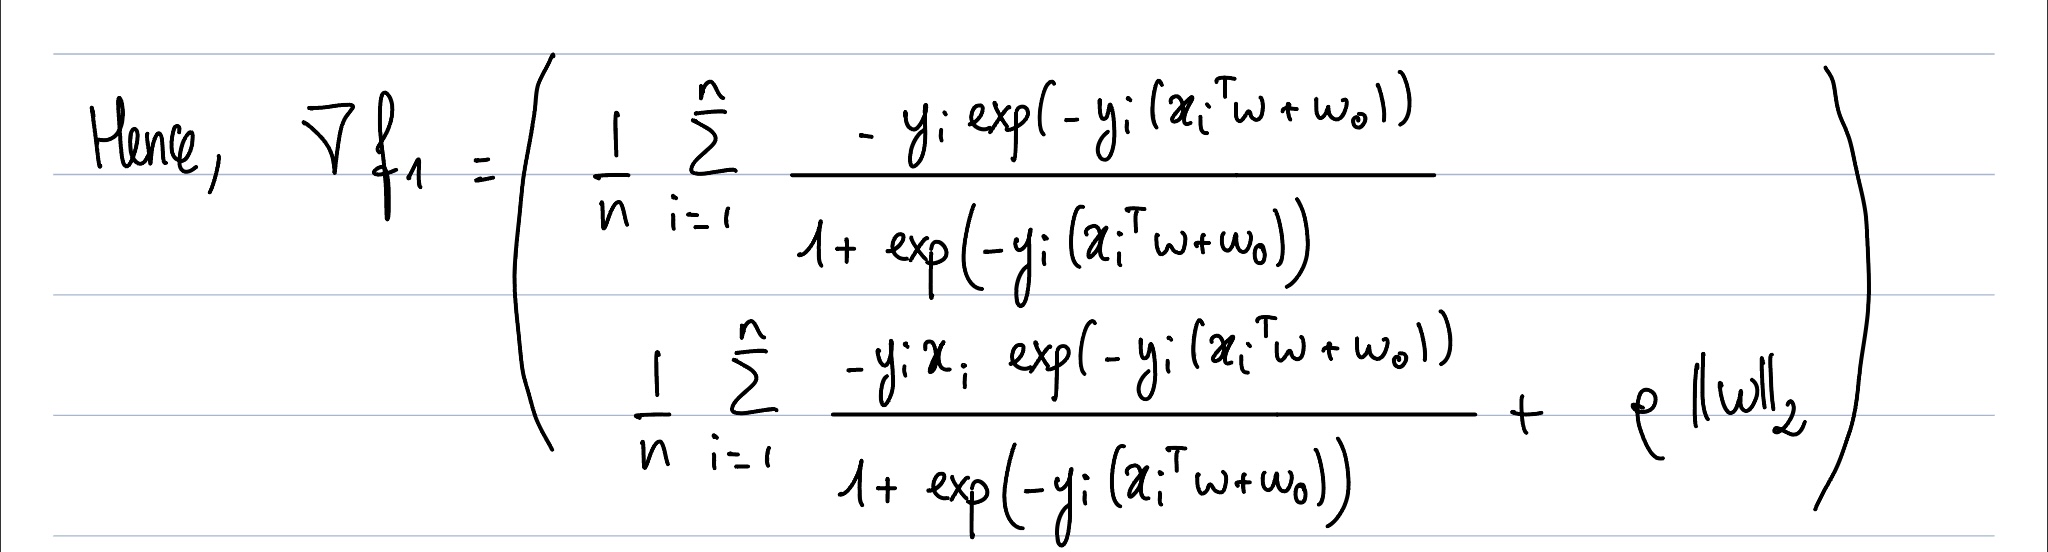 Hence, ∇f₁ = ( 1/n ∑_{i=1}^{n} (- yᵢ exp(- yᵢ (xᵢᵀw + w₀))) / (1 + exp(-yᵢ (xᵢᵀw + w₀)))
1/n ∑_{i=1}^{n} (-yᵢ xᵢ exp(- yᵢ (xᵢᵀw + w₀))) / (1 + exp(-yᵢ (xᵢᵀw + w₀))) + ρ ||w||₂ )